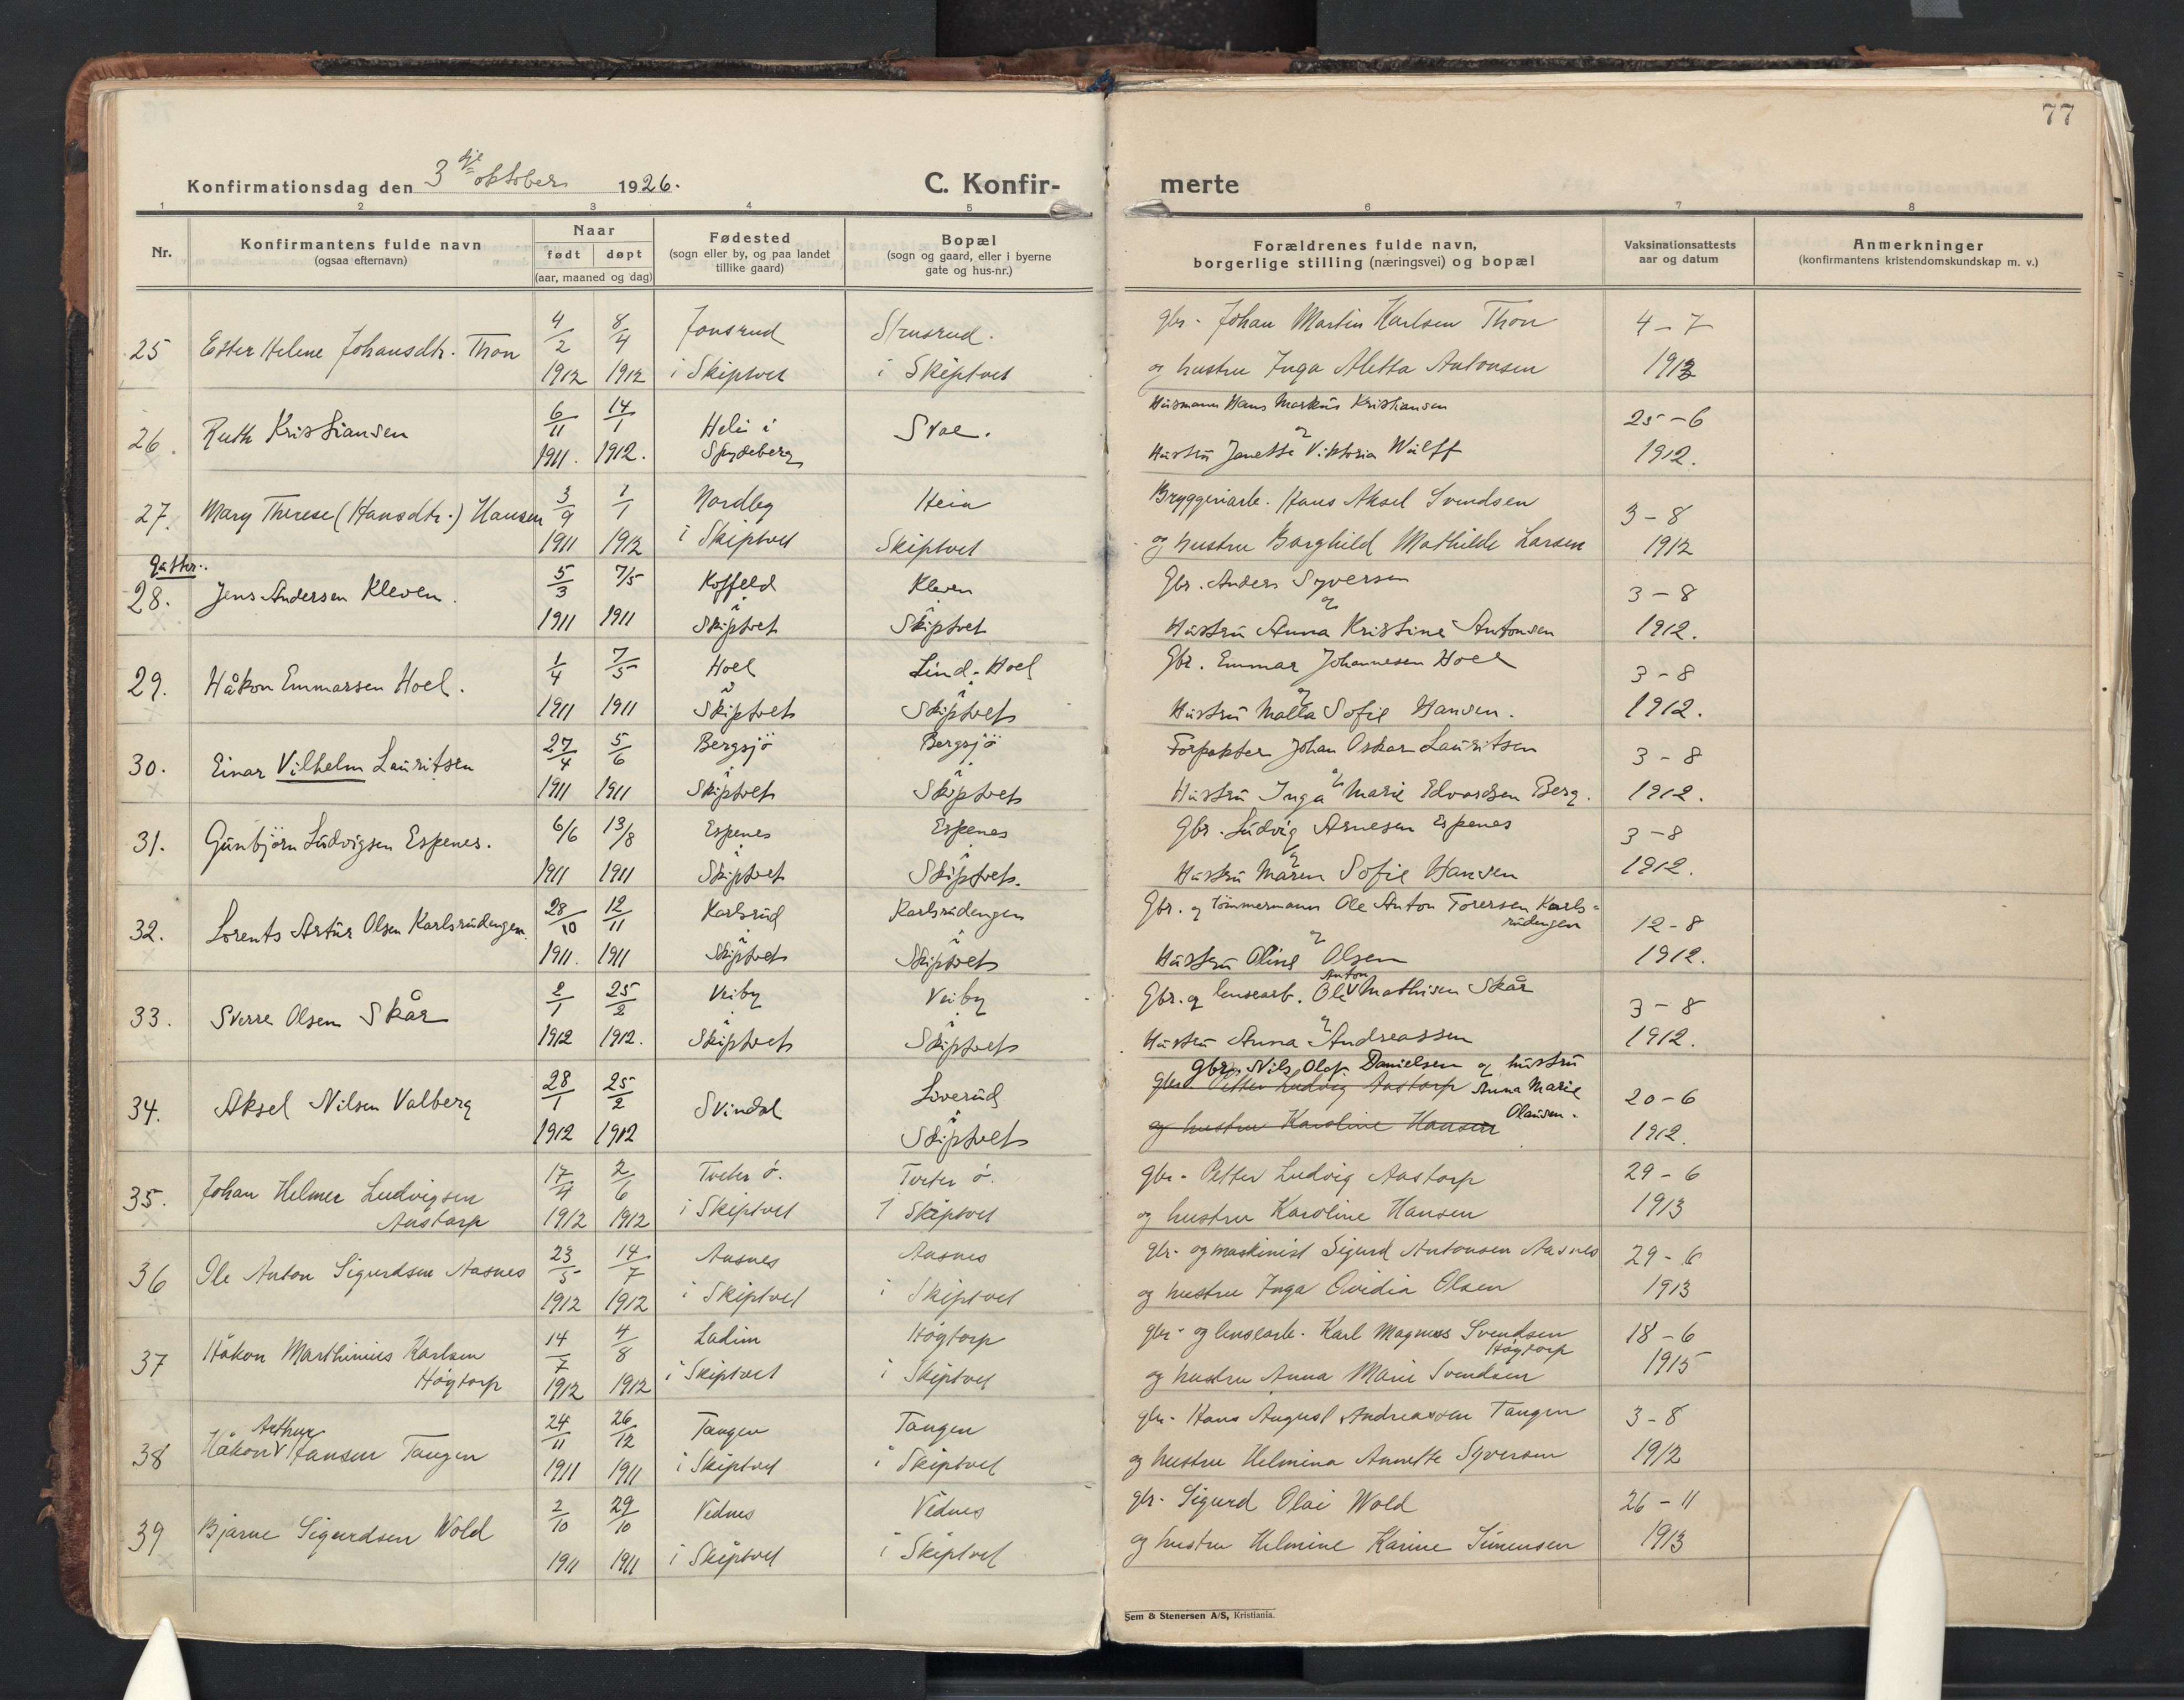 77
Konfirmationsdag den 3dje oktober 1926.
C. Konfirmerte
1 2 3 4 5 6 7 8
Nr.
Konfirmantens fulde navn
(ogsaa efternavn)
Naar
født døpt
(aar, maaned og dag)
Fødested
(sogn eller by, og paa landet
tillike gaard)
Bopæl
(sogn og gaard, eller i byerne
gate og hus-nr.)
Forældrenes fulde navn,
borgerlige stilling (næringsvei) og bopæl
Vaksinationsattests
aar og datum
Anmerkninger
(konfirmantens kristendomskundskap m. v.)
25 Ester Helene Johansdtr. Thon 4/2 1912 8/4 1912 Jonsrud i Skiptvet Strusrud. i Skiptvet
gbr. Johan Martin Karlsen Thon 4-7
og hustru Inga Aletta Antonsen 1913
26. Ruth Kristiansen 6/11 1911. 14/1 1912. Heli i Spydeberg Svae.
Husmann Hans Markus Kristiansen 25-6
og Hustru Janette Viktoria Wulff 1912.
27. Mary Therese (Hansdtr.) Hansen 3/9 1911 1/1 1912 Nordby i Skiptvet Hein Skiptvet
Bryggeriarb. Hans Aksel Svendsen 3-8
og hustru Borghild Mathilde Larsen 1912
Gutter.
28. Jens Andersen Kleven. 5/3 1911 7/5 1911 Koffeld i Skiptvet Kleven i Skiptvet
Gbr. Anders Syversen 3-8
og Hustru Anna Kristine Antonsen 1912.
29. Håkon Emmarsen Hoel. 1/4 1911 7/5 1911 Hoel i Skiptvet Lind-Hoel i Skiptvet
Gbr. Emmar Johannesen Hoel 3-8
og Hustru Malla Sofie Hansen. 1912.
30. Einar Vilhelm Lauritsen 27/4 1911 5/6 1911 Bergsjö i Skiptvet Bergsjö i Skiptvet
Forpakter Johan Oskar Lauritsen 3-8
og Hustru Inga Marie Edvardsen Berg. 1912.
31. Gunbjörn Ludvigsen Espenes. 6/6 1911 13/8 1911 Espenes i Skiptvet Espenes i Skiptvet.
Gbr. Ludvig Arnesen Espenes 3-8
og Hustru Maren Sofie Hansen 1912.
32. Lorents Artur Olsen Karlsrudengen. 28/10 1911. 12/11 1911 Karlsrud i Skiptvet Karlsrudengen i Skiptvet
Gbr. og tömmermann Ole Anton Torersen Karls=
rudengen 12-8
og Hustru Oline Olsen 1912.
33. Sverre Olsen Skår 2/1 1912 25/2 1912. Veiby i Skiptvet Veiby i Skiptvet
Gbr. og lensearb. Ole Anton Mathisen Skår 3-8
og Hustru Anna Andreassen 1912.
34. Aksel Nilsen Valberg 28/1 1912 25/2 1912 Svindal Loverud i Skiptvet
Gbr. Nils Olof Danielsen og hustru
gbr. Petter Ludvig Aastorp Anna Marie 20-6
og hustru Karoline Hansen Olausen. 1912.
35. Johan Helmer Ludvigsen
Aastorp 17/4 1912 2/6 1912 Tveter ö. i Skiptvet Tveter ö. i Skiptvet
gbr. Petter Ludvig Aastorp 29-6
og hustru Karoline Hansen 1913
36 Ole Anton Sigurdsen Aasnes 23/5 1912 14/7 1912 Aasnes i Skiptvet Aasnes i Skiptvet
gbr. og maskinist Sigurd Antonsen Aasnes 29-6
og hustru Inga Ovidia Olsen 1913
37 Håkon Marthinius Karlsen
Høgtorp 14/7 1912 4/8 1912 Ladim i Skiptvet Høgtorp i Skiptvet
gbr. og lensearb. Karl Magnus Svendsen
Høgtorp 18-6
og hustru Anna Marie Svendsen 1915
38 Håkon Arthur Hansen Tangen 24/11 1911 26/12 1911 Tangen i Skiptvet Tangen i Skiptvet
gbr. Hans August Andreassen Tangen 3-8
og hustru Helmina Annette Syversen 1912
39 Bjarne Sigurdsen Wold 2/10 1911 29/10 1911 Vidnes i Skiptvet Vidnes i Skiptvet
gbr. Sigurd Olai Wold 26-11
og hustru Helmine Karine Simensen 1913
Sem & Stenersen A/S, Kristiania.